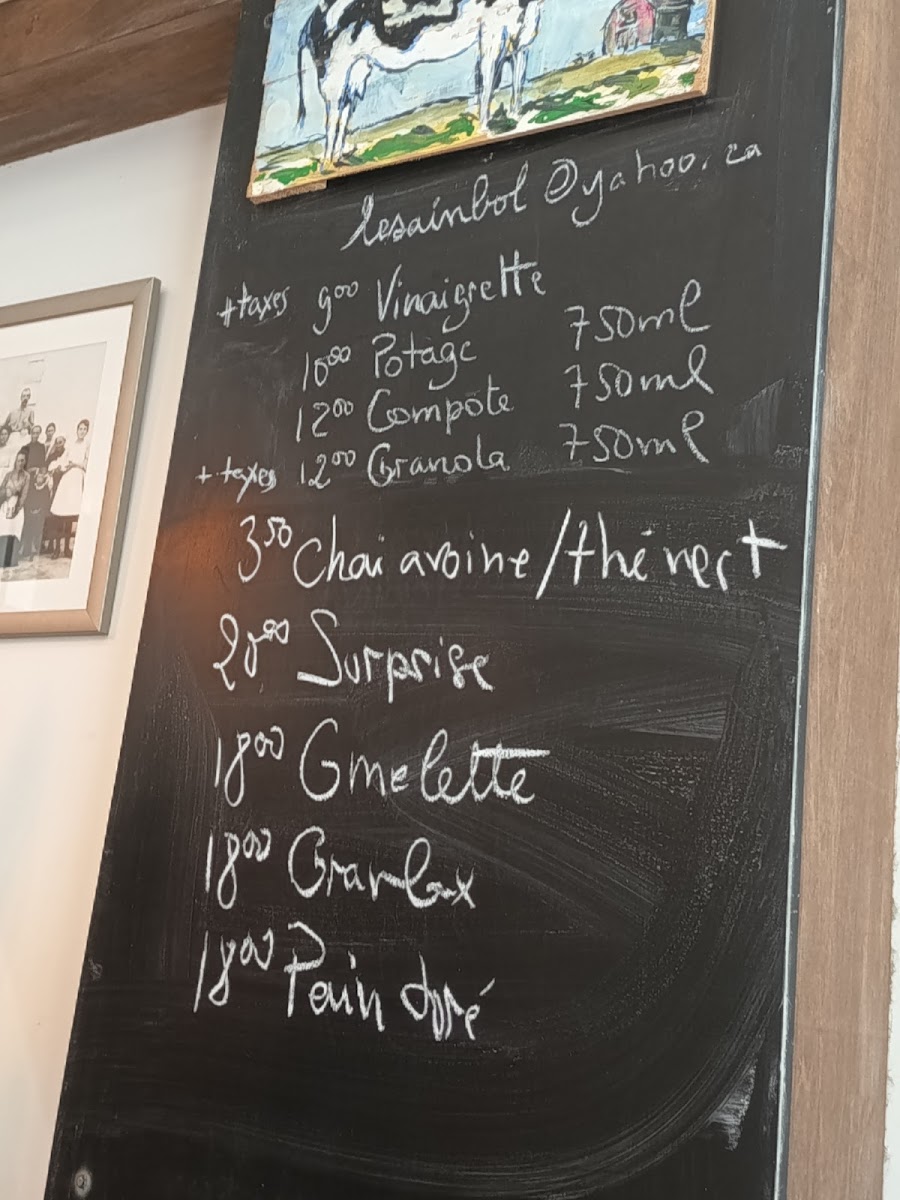 lesainbol@yahoo.ca
+taxes 900 Vinaigrette
1000 Potage 750ml
1200 Compote 750ml
+ taxes 1200 Granola 750ml
350 Chai avoine/thé vert
2000 Surprise
1800 Omelette
1800 Gravlax
1800 Pain doré